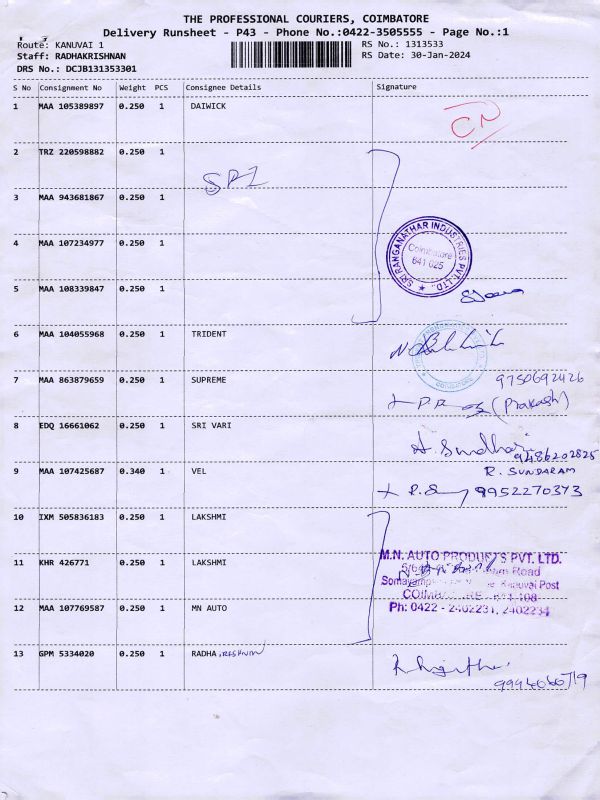 THE PROFESSIONAL COURIERS, COIMBATORE
Delivery Runsheet - P43 - Phone No.:0422-3505555 - Page No.:1
Route: KANUVAI 1 RS No.: 1313533
Staff: RADHAKRISHNAN RS Date: 30-Jan-2024
DRS No.: DCJB131353301
S No Consignment No Weight PCS Consignee Details Signature
1 MAA 105389897 0.250 1 DAIWICK
CN
2 TRZ 220598882 0.250 1
SRI
3 MAA 943681867 0.250 1
SRI RANGANATHAR INDUSTRIES PVT. LTD.,
Coimbatore
641 025
4 MAA 107234977 0.250 1
5 MAA 108339847 0.250 1
6 MAA 104055968 0.250 1 TRIDENT
7 MAA 863879659 0.250 1 SUPREME
9750692426
(Prakash)
8 EDQ 16661062 0.250 1 SRI VARI
A. Sundhari
9486202825
9 MAA 107425687 0.340 1 VEL
R. SUNDARAM
9952270373
10 IXM 505836183 0.250 1 LAKSHMI
11 KHR 426771 0.250 1 LAKSHMI
M.N. AUTO PRODUCTS PVT. LTD.
Road
Kanuvai Post
COIMBATORE - 641 108
Ph: 0422 - 2402231, 2402234
12 MAA 107769587 0.250 1 MN AUTO
13 GPM 5334020 0.250 1 RADHA KRISHNAN